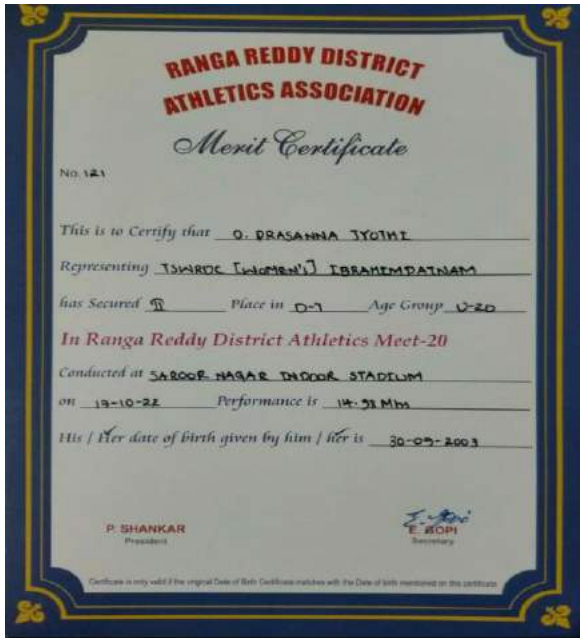 RANGA REDDY DISTRICT
ATHLETICS ASSOCIATION
Merit Certificate
No. 121
This is to Certify that O. PRASANNA JYOTHI
Representing TSWRDC [WOMEN'S] IBRAHEMPATNAM
has Secured II Place in D-7 Age Group U-20
In Ranga Reddy District Athletics Meet-20
Conducted at SAROOR NAGAR INDOOR STADIUM
on 19-10-22 Performance is 14.58 Mts
His / Her date of birth given by him / her is 30-09-2003
E. Gopi
P. SHANKAR E. GOPI
President Secretary
Certificate is only valid if the original Date of Birth Certificate matches with the Date of birth mentioned on this certificate